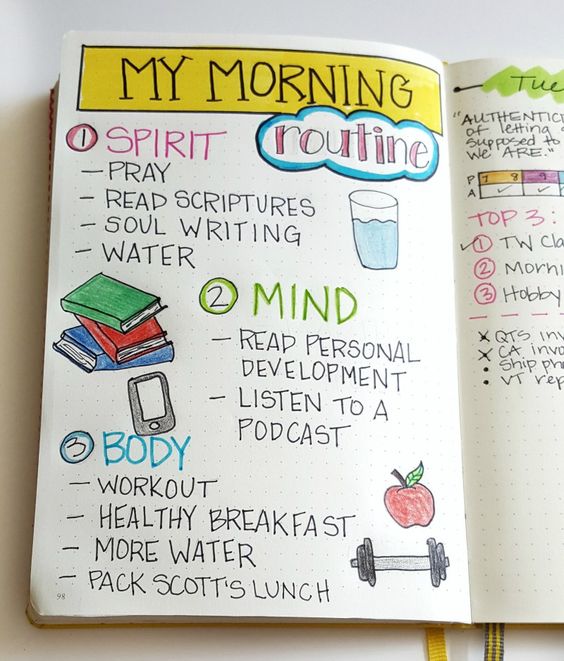 MY MORNING
routine
1 SPIRIT
- PRAY
- READ SCRIPTURES
- SOUL WRITING
- WATER
2 MIND
- READ PERSONAL
DEVELOPMENT
- LISTEN TO A
PODCAST
3 BODY
- WORKOUT
- HEALTHY BREAKFAST
- MORE WATER
- PACK SCOTT'S LUNCH
98
"AUTHENTIC
of letting
supposed to
we ARE."
P 7 8 9
A ✓ ✓
TOP 3:
✓ 1 TW Cla
2 Morni
3 Hobby
x QTS inv
x CA invo
• Ship pho
• VT rep